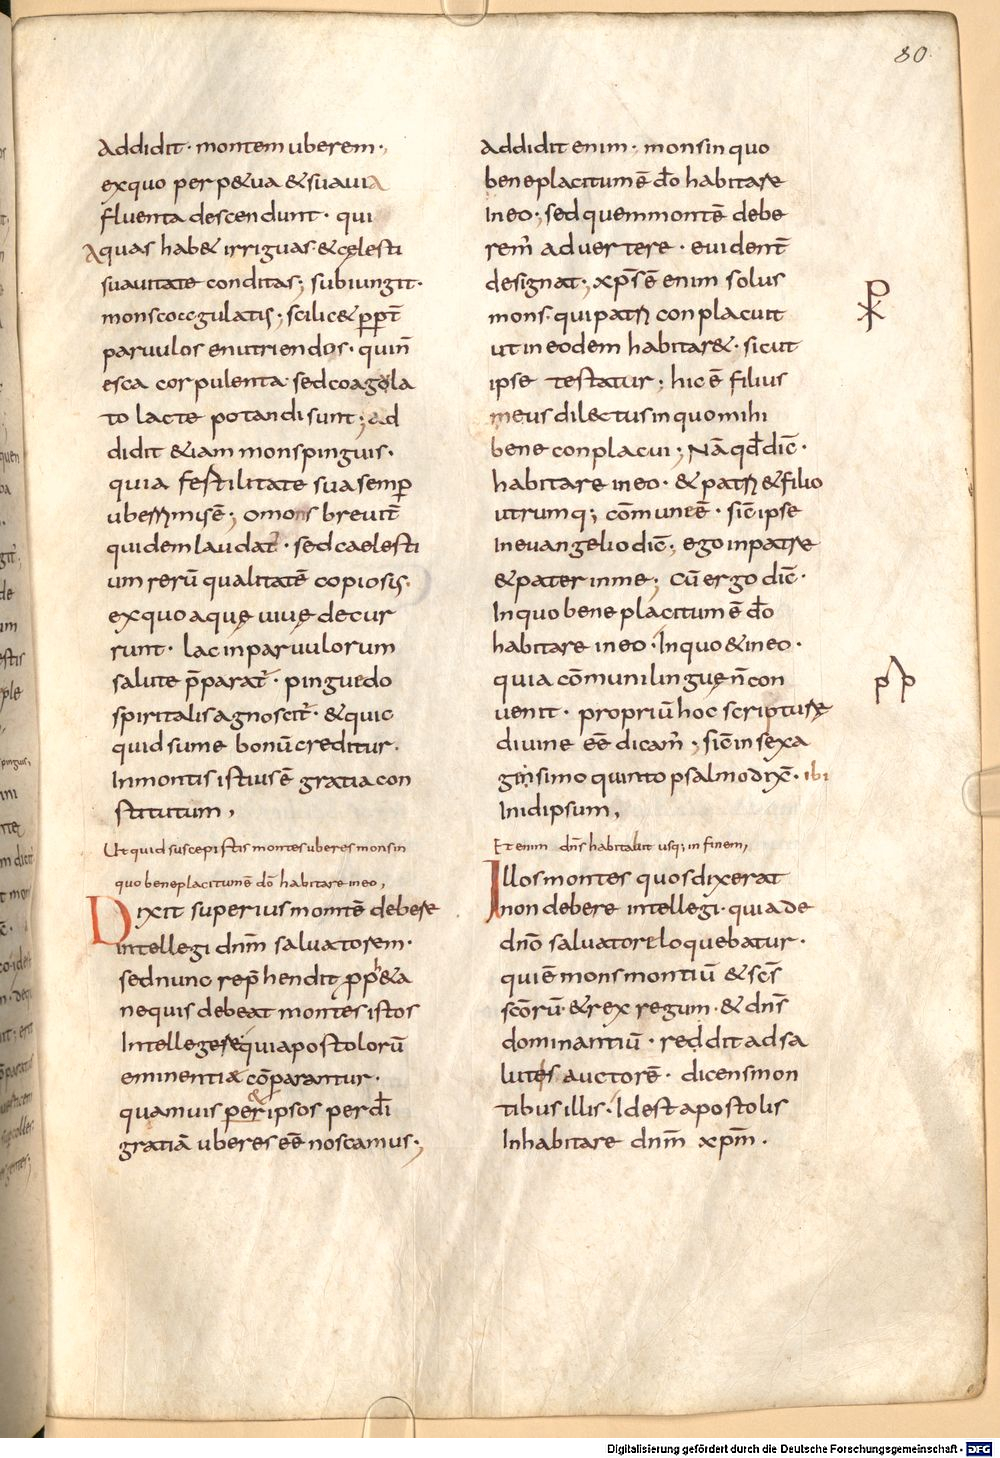 80
Addidit· montem uberem·,
exquo perp&ua &suauia
fluenta descendunt· qui
Aquas hab& irriguas &cęlesti
suauitate conditas; subiungit·
monscoagulatis; scilic& ꝓpt̄
paruulos enutriendos· quin̄
esca corpulenta sedcoagola
to lacte potandi sunt; ad
didit &iam monspinguis·
quia festilitate suasemp̄
uberrimisē; Omons breuit̄
quidem laudat̄· sedcaelesti
um rerū qualitatē copiosis·
exquo aquę uiuę decur
runt· lac inparuulorum
salute p̄parat̄· pinguedo
spiritalis agnoscit̄· &quic
quid sume bonū creditur·
Inmontis istius ē gratia con
stitutum,
Ut quid suscepistis montes uberes monsin
quo beneplacitum ē dō habitare ineo,
Dixit superius montē debere
intellegi dnm̄ saluatorem·
sednunc rep̄hendit ꝓph&a
nequis debeat montes istos
Intellegere quiapostolorū
eminentiæ cōparantur·
quamuis per & ipsos per dī
gratiā uberes eē noscamus;
Addidit enim· monsin quo
beneplacitum ē dō habitare
Ineo; sed quemmontē debe
rem̄ aduertere· euident̄
designat; xp̄s ē enim solus
mons· qui patri conplacuit
ut ineodem habitar&· sicut
ipse testatur; hic ē filius
meus dilectus in quo mihi
bene conplacui; Nā qd̄ dic̄·
habitare ineo· & patri & filio
utrumq; cōmune ē· sic̄ ipse
In euangelio dic̄; ego inpatre
& pater inme; cū ergo dic̄·
In quo bene placitum ē dō
habitare ineo· In quo & ineo·
quia cōmuni linguę n̄ con
uenit· propriū hoc scripture
diuine eē dicam̄; sic̄ in sexa
ginsimo quinto psalmo dix̄· ibi
Inidipsum,
Et enim dn̄s habitabit usq; in finem,
Illos montes quos dixerat
non debere intellegi· quia de
dnō saluatore loquebatur·
qui ē mons montiū & sc̄s
sc̄orū· & rex regum· & dn̄s
dominantiū· reddit ad sa
lutis auctorē· dicens mon
tibus illis· Id est apostolis
Inhabitare dnm̄ xp̄m·
Digitalisierung gefördert durch die Deutsche Forschungsgemeinschaft · DFG